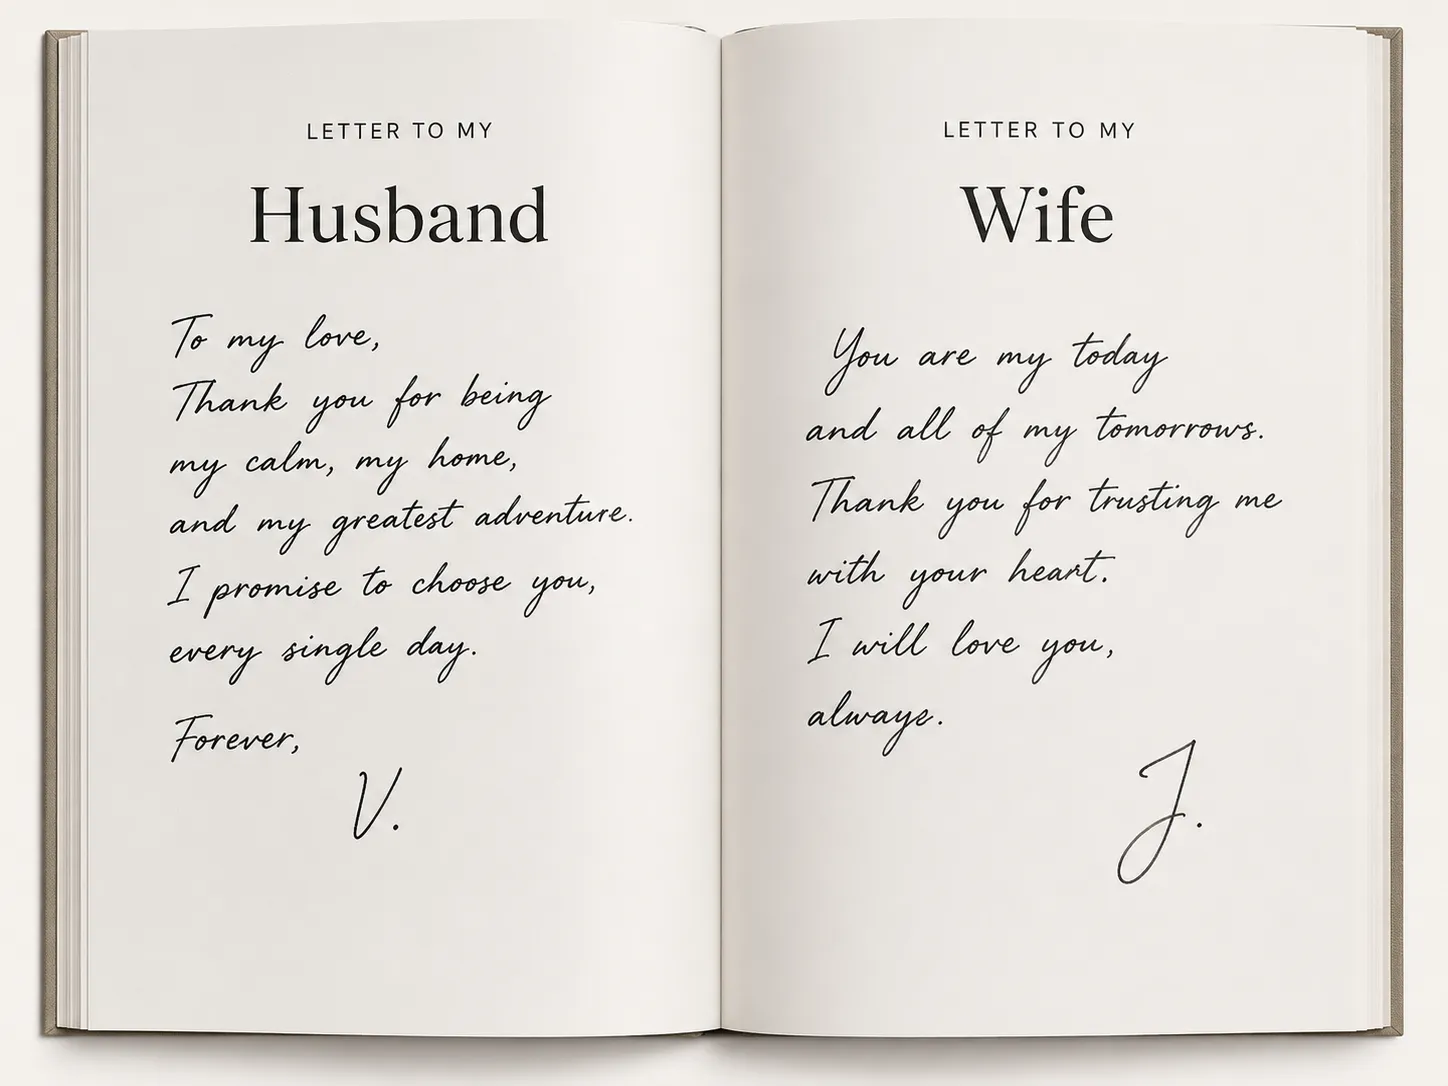 LETTER TO MY
Husband
To my love,
Thank you for being
my calm, my home,
and my greatest adventure.
I promise to choose you,
every single day.
Forever,
V.
LETTER TO MY
Wife
You are my today
and all of my tomorrows.
Thank you for trusting me
with your heart.
I will love you,
alwaye.
J.